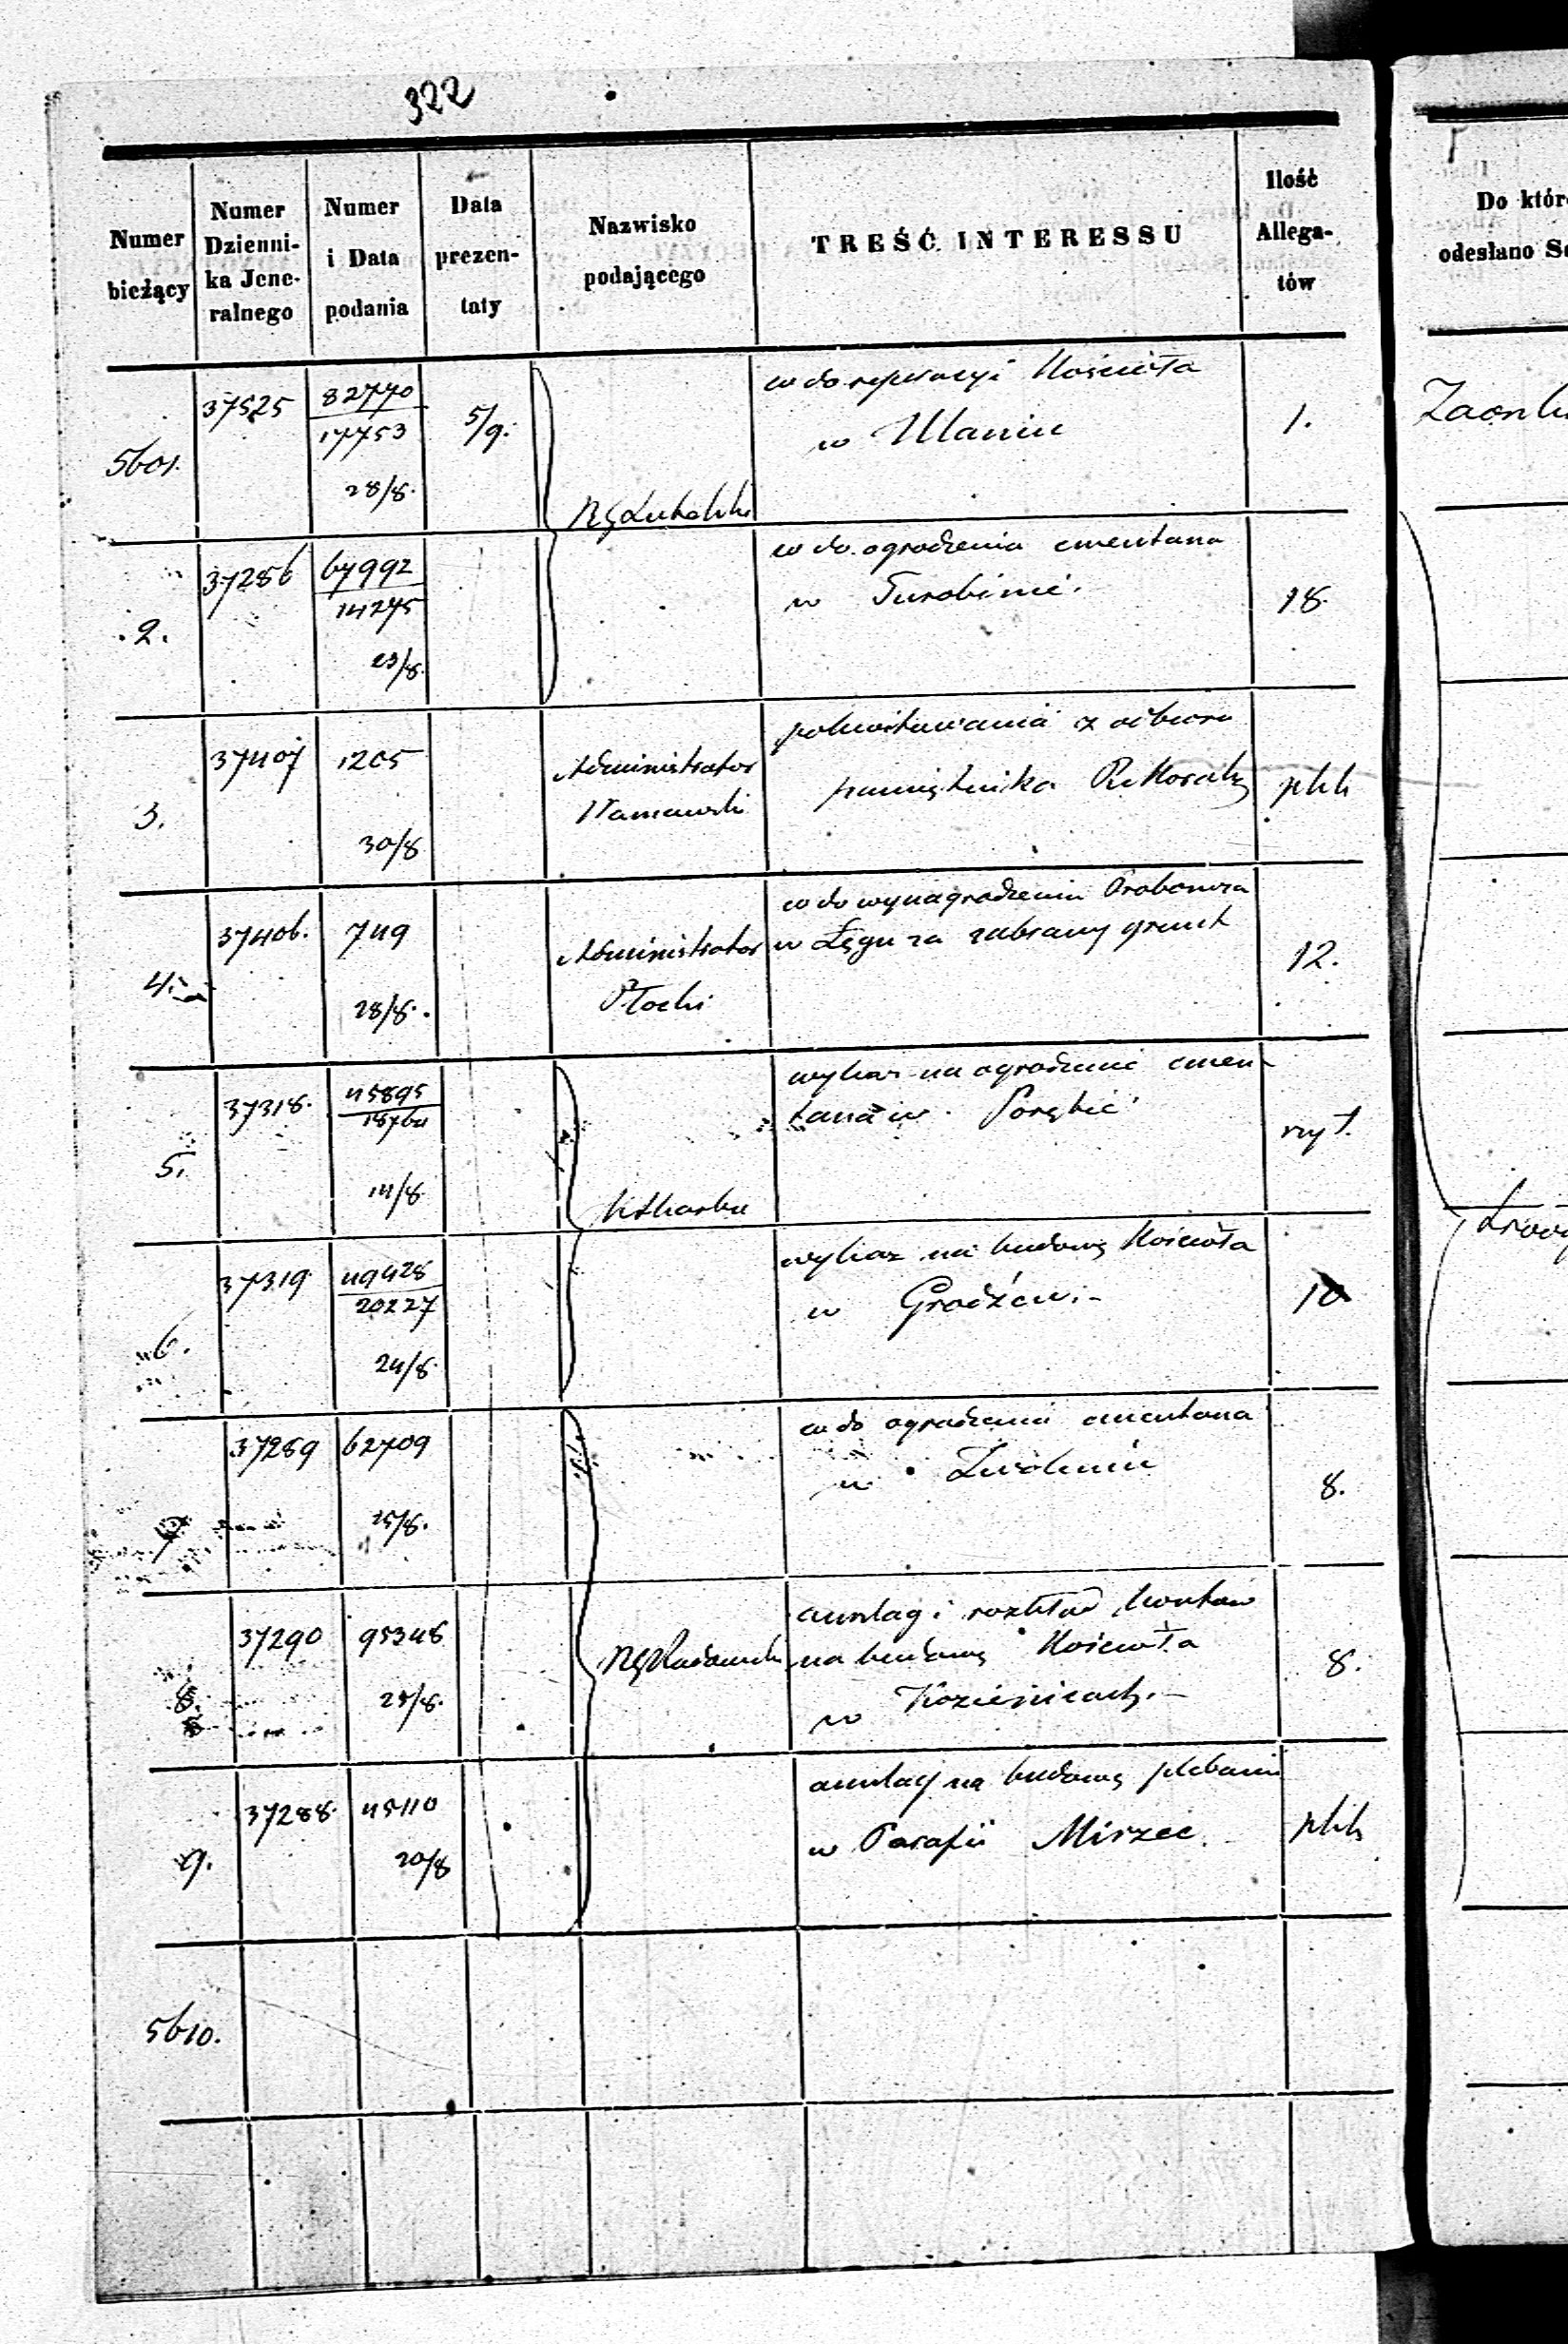 322
Numer bieżący
Numer Dzienni-ka Jene-ralnego
Numer i Data podania
Data prezen-taty
Nazwisko podającego
TREŚĆ INTERESSU
Ilość Allega-tów
Do któr
odesłano Se
5601.
37525
82770
17753
28/8.
5/9.
co do reperacyi Kościoła
w Ulanie
1.
RgLubelski
2.
37286
67992
14275
23/8.
co do ogrodzenia cmentarza
w Turobinie.
18.
3.
37407
1205
30/8
Administrator
Warszawski
pokwitowania z odbioru
pamiętnika
plik
4.
37406.
749
28/8.
Administrator
Płocki
co do wynagrodzenia Proboszcza
w Łęgu za zabrany grunt
12.
5.
37318.
45895
14/8
wykaz na ogrodzenie cmen-
tarza w Porębie
szyt.
KSkarbu
6.
37319
49428
20227
24/8.
wykaz na budowę Kościoła
w Grodźcu.-
10
7
37289
62709
25/8.
co do ogrodzenia cmentarza
w Zwoleniu
8.
8.
37290
95348
25/8.
RgRadomski
anszlag i rozkład kosztów
na budowę Kościoła
w Kozienicach.-
8.
9.
37288.
45110
20/8
anszlag na budowę plebanii
w Parafii Mirzec.
plik
5610.